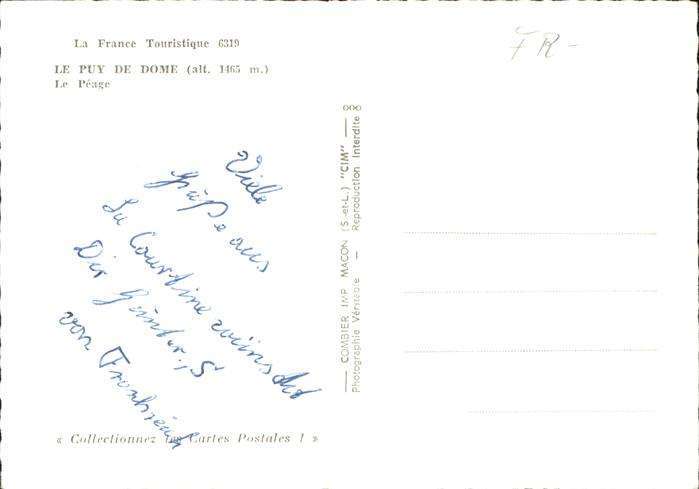 La France Touristique 6319
LE PUY DE DOME (alt. 1465 m.)
Le Péage
FR-
Viele
Grüße aus
La Courtine wünscht
Dir Günter, S
von Frankreich
« Collectionnez les Cartes Postales ! »
COMBIER IMP. MACON (S.-et-L.) "CIM"
Photographie Véritable - Reproduction Interdite